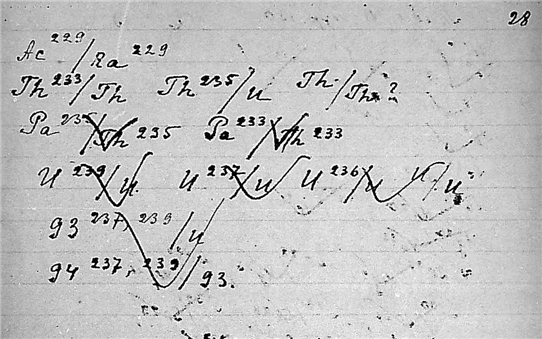 28
Ac²²⁹/Ra²²⁹
Th²³³/Th Th²³⁵/U Th/Th?
Pa²³⁵/Th²³⁵ Pa²³³/Th²³³
U²³⁹/U U²³⁷/U U²³⁶/U U/U
93²³⁷,²³⁹/U
94²³⁷,²³⁹/93.